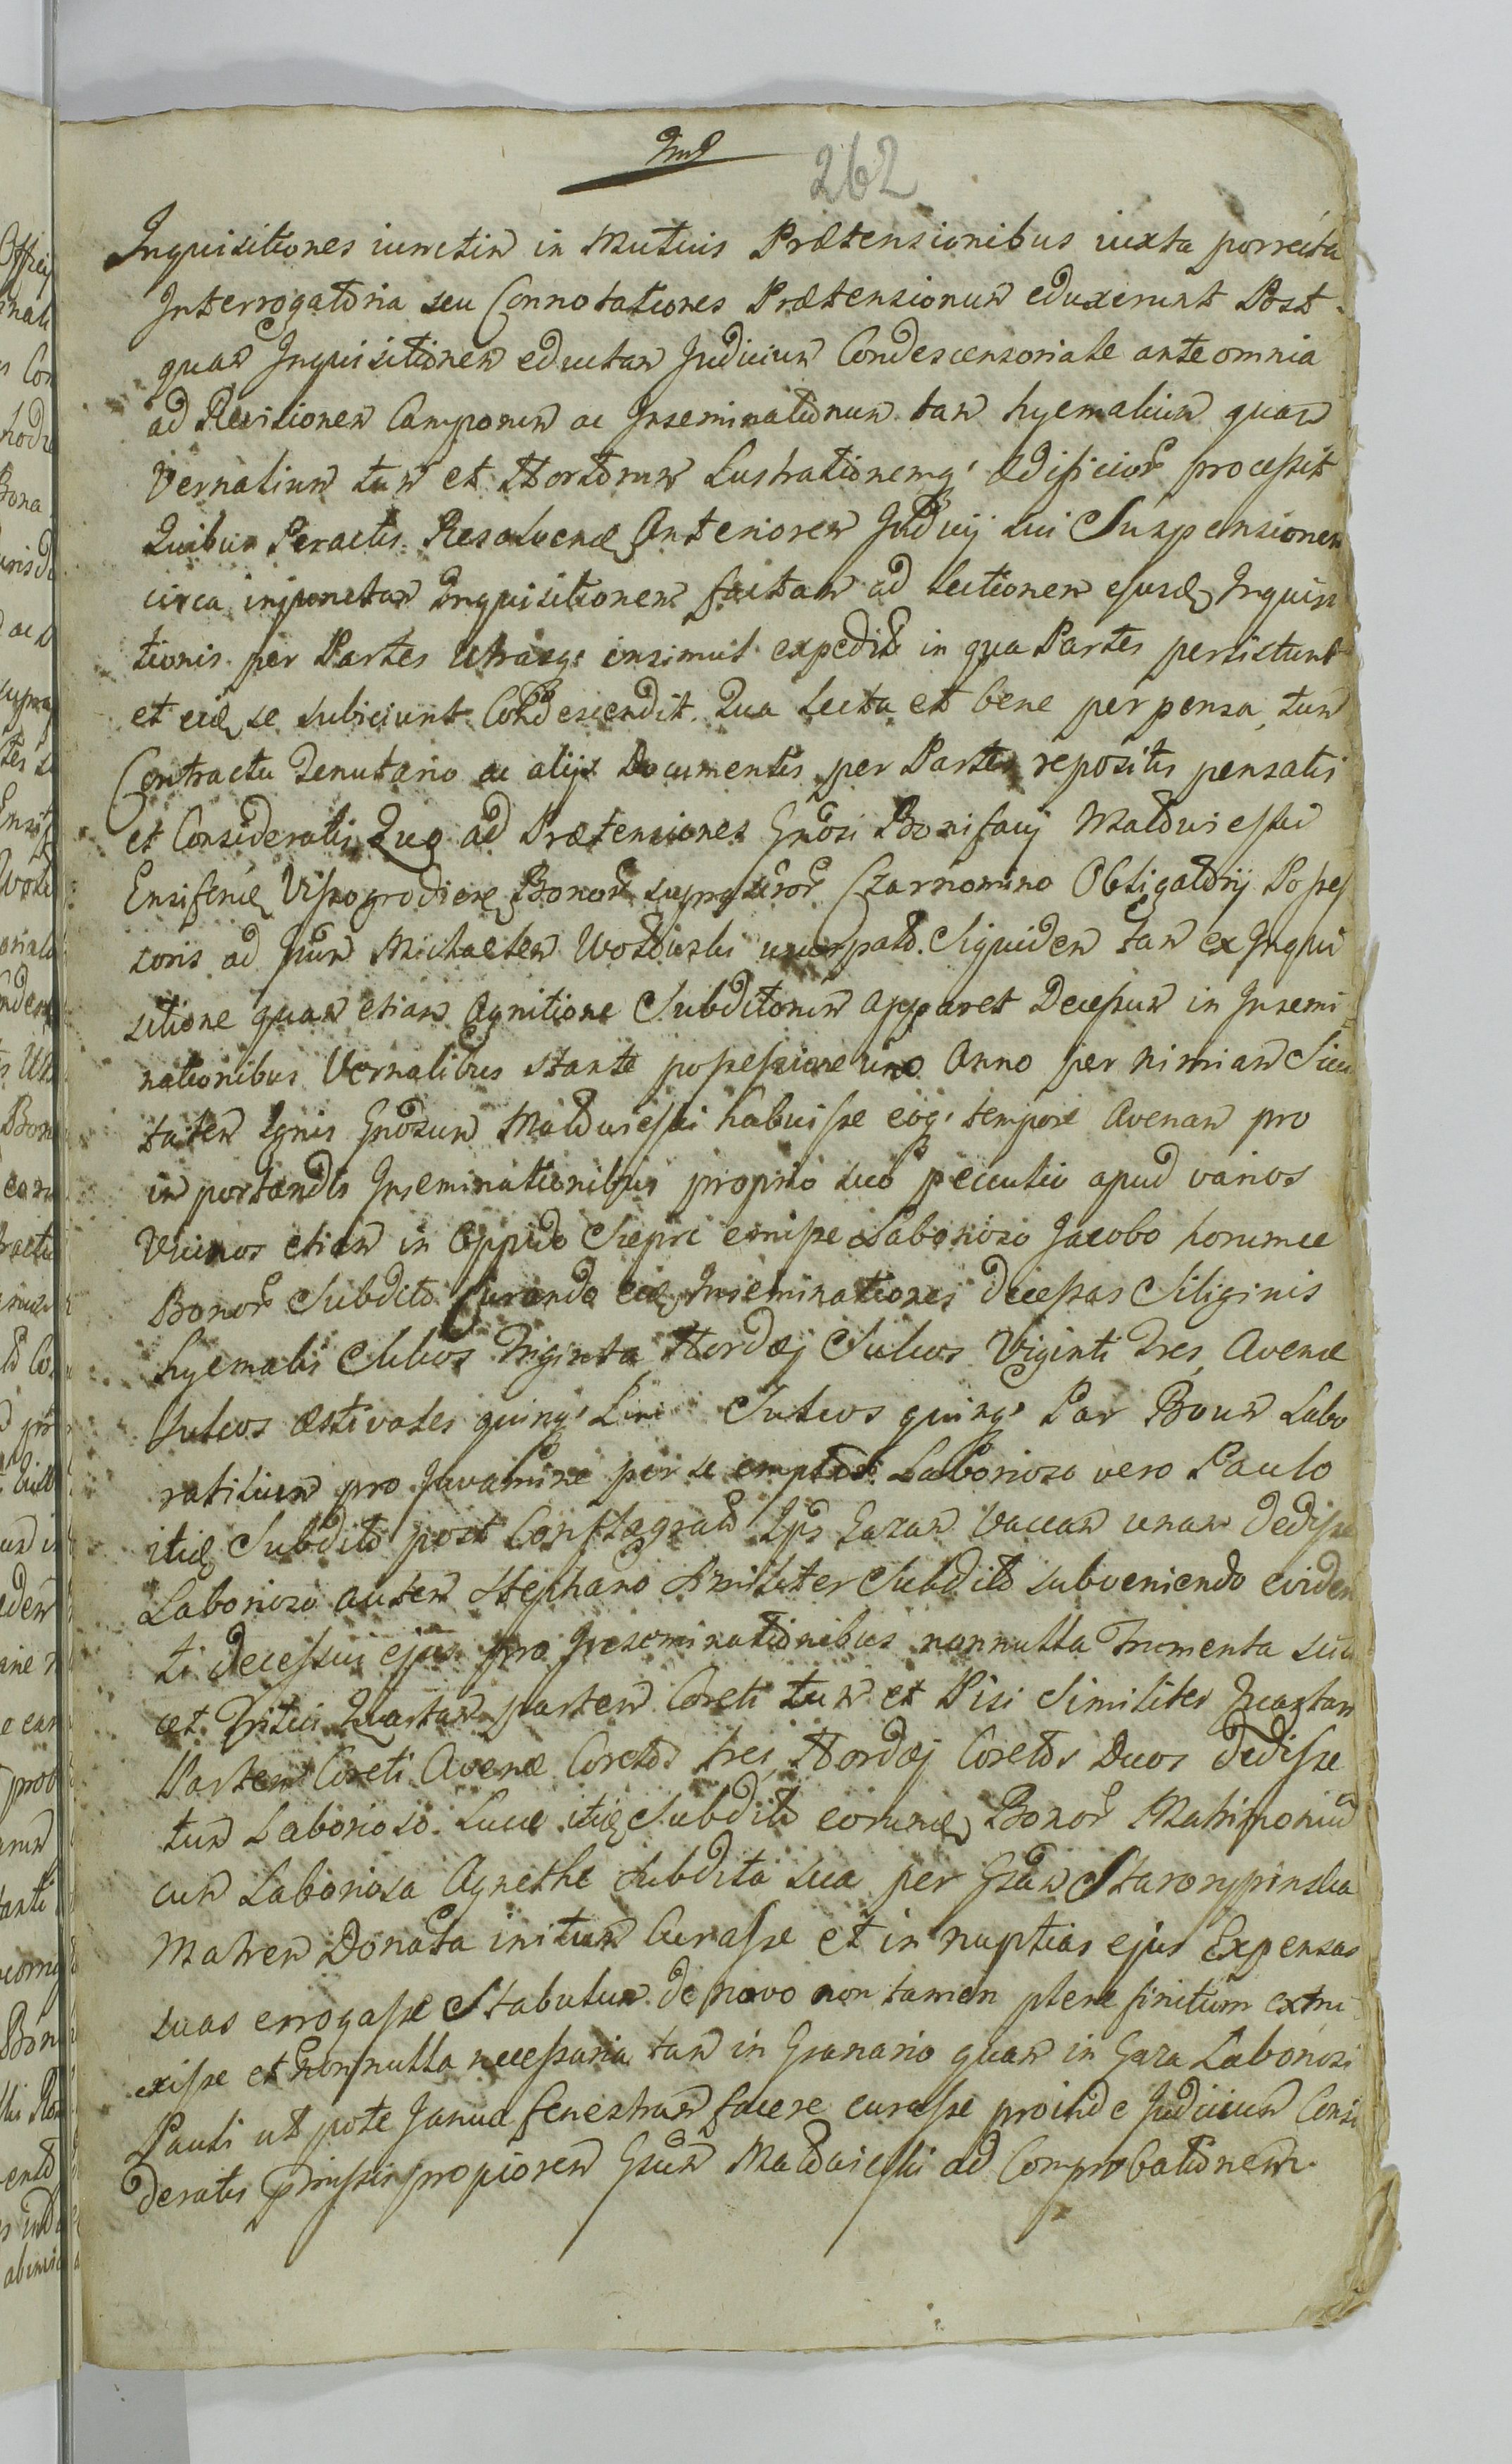 262
Inquisitiones iunctim in Mutuis Prætensionibus iuxta porrecta
Interrogatoria seu Connotationes Prætensionum eduxerunt Post-
quam Inquisitionem eductam Judicium Condescensoriale ante omnia
ad Revisionem Camporum ac Inseminationum tam hyemalium quam
Vernalium tum et Hortorum Lustrationemq' ædificior processit
Quibus Peractis Resolvend Anteriorem Judicij sui Suspensionem
circa injunctam Inquisitionem factam ad lectionem ejusd Inquisi
tionis per Partes Utrasq' insimul expedit in qua Partes persistunt
et eid se subiciunt Condescendit. Qua lecta et bene perpensa, tum
Contractu Tenutario ac alijs Documentis per Partes repositis pensatis
et Consideratis Quo ad Prætensiones Gnosi Bonifacij
Ensiferid Vissogrodien Bonor Czarnomino Obligatorij Posses
soris ad Gnum Michaelem Siquidem tam ex Inqui
sitione quam etiam Agnitione Subditorum apparet Decessum in Insemi-
nationibus Vernalibus stante possessione uno Anno per nimiam Sicci
tatem Ignis Gnosum habuisse eoq' tempore Avenam pro
importandis Inseminationibus proprio suo peculio apud varios
Vicinos etiam in Oppido Sierpc emisse Laborioso Jacobo horumce
Bonor Subdito Curando eid Inseminationes decessas Siliginis
hyemalis Sulcos Triginta Hordej Sulcos Viginti Tres, Avenæ
Sulcos æstivales quinq' Lini Sulcos quinq' Par Boum Labo
ratilium pro Juvamine per se emptos Laborioso vero Paulo
itid Subdito post Conflagratam Ips Gazam Vaccam unam dedisse
Laborioso autem Stephano Similiter Subdito subveniendo eviden
ti decessui ejus pro Inseminationibus nonnulla Frumenta
et Tritici Quartam partem Coreti tum et Pisi Similiter Quartam
Partem Coreti Avenæ Coretos tres Hordej Coretos Duos dedisse
tum Laborioso Lucæ itid Subdito eorund Bonor Matrimonium
cum Laboriosa Agnethe Subdita sua per Gsam
Matrem Donata initum Curasse et in nuptias ejus Expensas
suas errogasse Stabulum de novo non tamen plene finitum extru
xisse et nonnulla necessaria tam in Granario quam in Gaza Laboriosi
Pauli utpote Januæ fenestram facere curasse proinde Judicium Consi
deratis præmissis propiorem Gsum ad Comprobationem